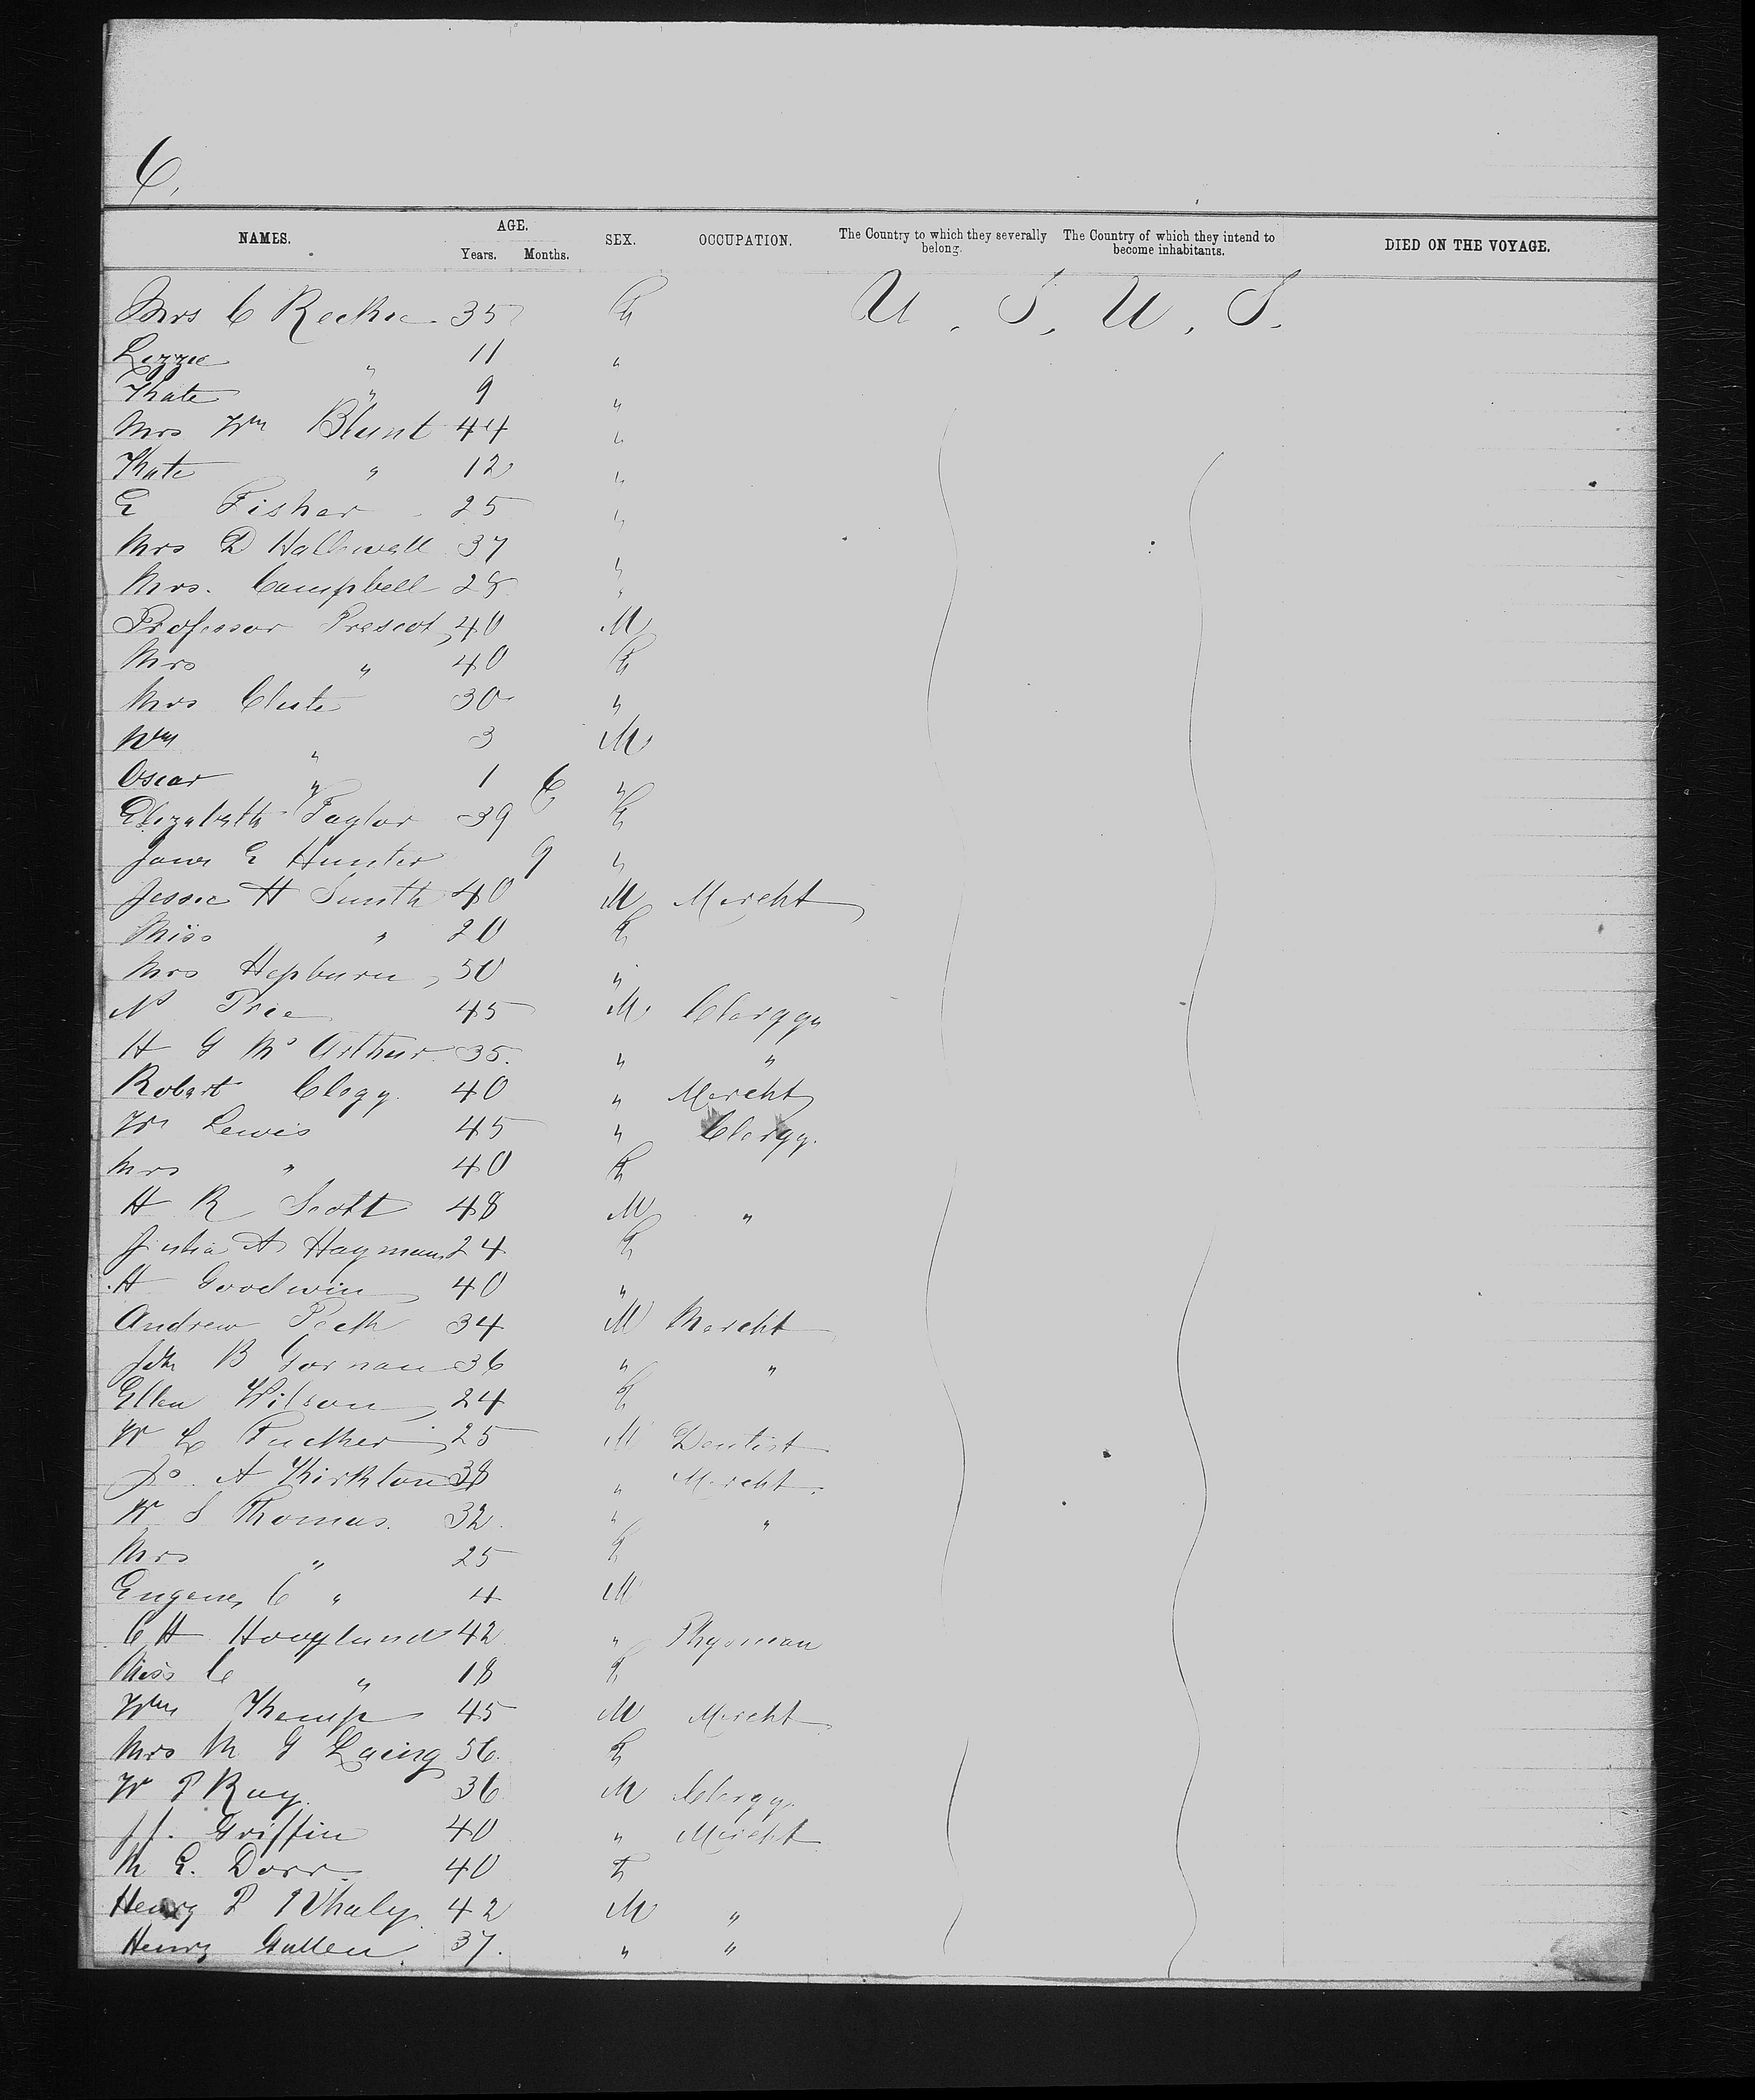 6.
NAMES. AGE. Years. Months. SEX. OCCUPATION. The Country to which they severally belong. The Country of which they intend to become inhabitants. DIED ON THE VOYAGE.
Mrs C 35 F U. S. U. S.
Lizzie " 11 "
Kate " 9 "
Mrs Wm Blunt 44 "
Kate " 12 "
E Fisher 25 "
Mrs D Hallowell 37 "
Mrs. Campbell 28 "
Professor Prescot 40 M
Mrs " 40 F
Mrs Clute 30 "
Wm " 3 M
Oscar " 1 6 "
Elizabeth Taylor 39 F
E Hunter 9 "
Jessie H Smith 40 M Mercht
Miss " 20 F
Mrs Hepburn 50 "
N 45 M Clergy
H G Mc Arthur 35. " "
Robert Clegg 40 " Mercht
Wm Lewis 45 " Clergy.
Mrs " 40 F
H R Scott 48 M "
Julia A Hayman 24 F
H Goodwin 40 "
Andrew Peck 34 M Mercht
B Gorman 36 " "
Ellen Wilson 24 F
W Tucker 25 M Dentist
Jo. A Kirkton 38 " Mercht.
W S Thomas. 32. " "
Mrs " 25 F
Eugene C " 4 M
C H Hoagland 42 " Physician
Miss C " 18 F
Wm Kemp 45 M Mercht
Mrs M G Laing 56. F
W P Ray. 36 M Clergy.
J J. Griffin 40 " Mercht
M E. Dorr 40 F
Henry P Whaly 42 M "
Henry Gullen. 37. " "